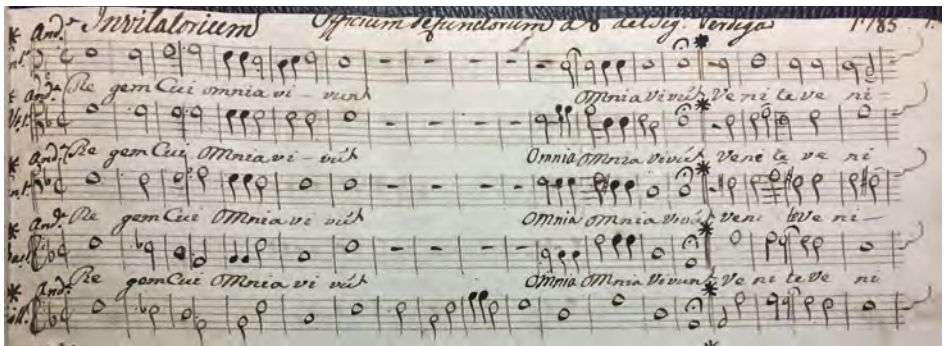 Invitatorium Officium defunctorum a 8 del Sig. Verdiga 1785
And.e
Re gem Cui omnia vi - vunt omnia vivút Ve ni te ve ni -
And.e
Re gem Cui omnia vi - vút Omnia Omnia vivút Veni te ve ni
And.e
Re gem Cui Omnia vi vút Omnia omnia vivút Veni te Ve ni -
And.e
Re gem Cui Omnia vi vút Omnia Omnia Vivunt Ve ni te Ve ni
And.e